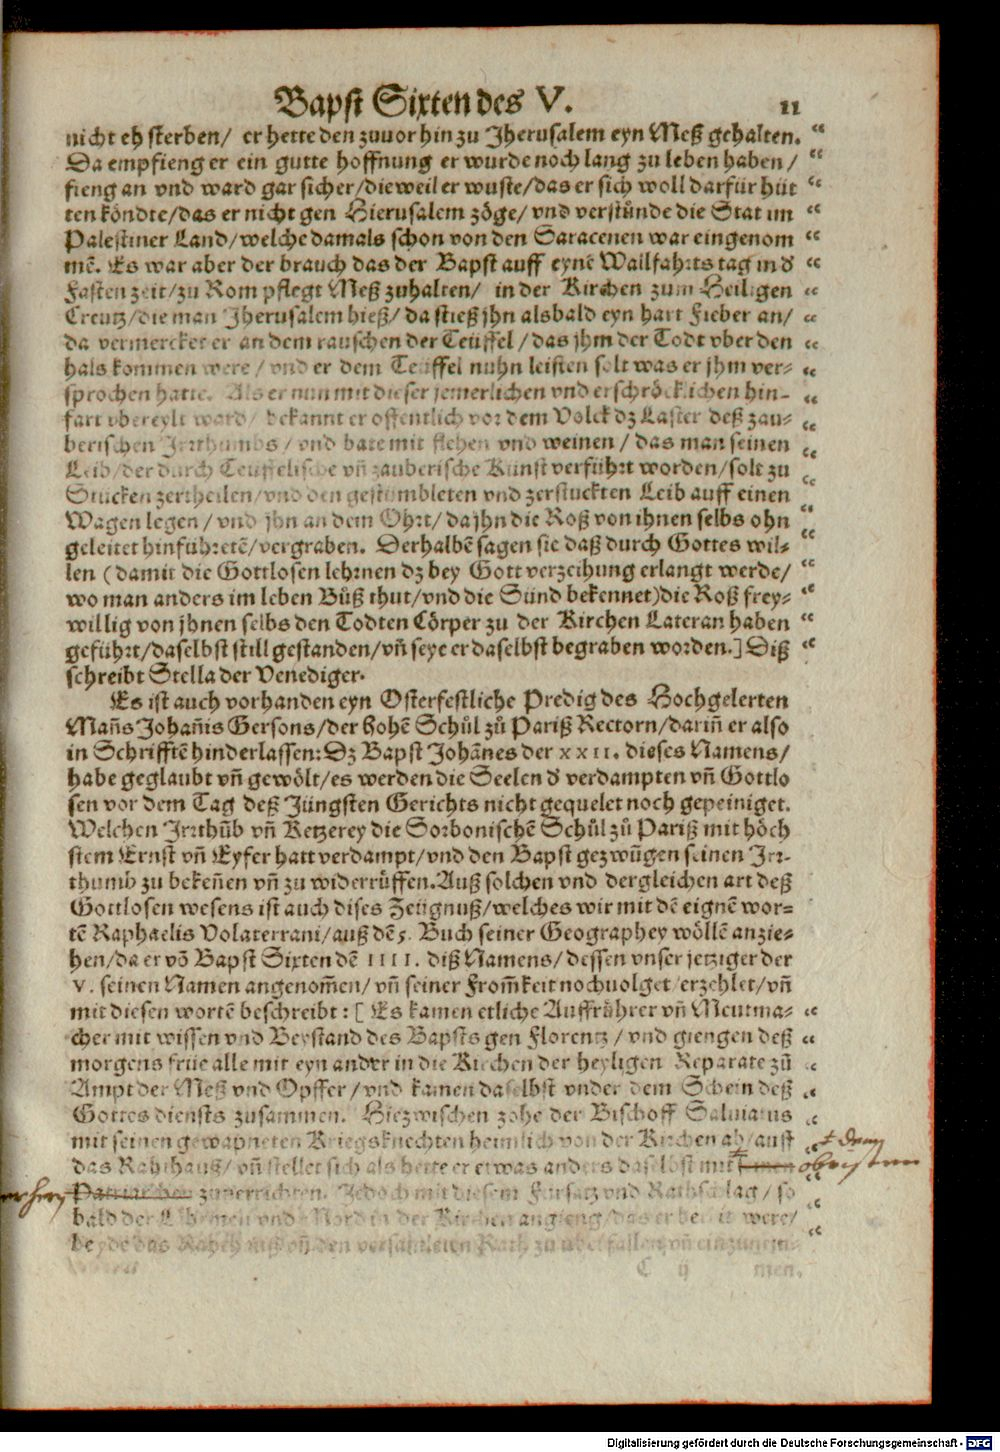 Bapst Sixten des V. 11
nicht eh sterben/ er hette den zuuor hin zu Jherusalem eyn Meß gehalten.
Da empfieng er ein gutte hoffnung er wurde noch lang zu leben haben/
fieng an vnd ward gar sicher/dieweil er wuste/das er sich woll darfür hüt
ten köndte/das er nicht gen Hierusalem zöge/vnd verstünde die Stat im
Palestiner Land/welche damals schon von den Saracenen war eingenom
mē. Es war aber der brauch das der Bapst auff eynē Wallfahrts tag in d̕
Fasten zeit/zu Rom pflegt Meß zuhalten/ in der Kirchen zum Heiligen
Creutz/die man Jherusalem hieß/da stieß jhn alsbald eyn hart Fieber an/
da vermercket er an dem rauschen der Teüffel/das jhm der Todt vber den
hals kommen were/vnd er dem Teuffel nuhn leisten solt was er jhm ver-
sprochen hatte. Als er nun mit dieser jemerlichen vnd erschröcklichen hin-
fart vbereylt ward/ bekannt er offentlich vor dem Volck dz Laster deß zau-
berischen Jrrthumbs/vnd bate mit flehen vnd weinen/das man seinen
Leib/der durch Teuffelische vn̄ zauberische Kunst verführt worden/solt zu
Stucken zertheilen/vnd den gestumbleten vnd zerstuckten Leib auff einen
Wagen legen/vnd jhn an dem Ohrt/da jhn die Roß von ihnen selbs ohn
geleitet hinführetē/vergraben. Derhalbē sagen sie daß durch Gottes wil-
len (damit die Gottlosen lehrnen dz bey Gott verzeihung erlangt werde/
wo man anders im leben Büß thut/vnd die Sünd bekennet)die Roß frey-
willig von jhnen selbs den Todten Cörper zu der Kirchen Lateran haben
geführt/daselbst still gestanden/vn̄ seye er daselbst begraben worden.] Diß
schreibt Stella der Venediger.
Es ist auch vorhanden eyn Osterfestliche Predig des Hochgelerten
Man̄s Johan̄is Gersons/der hohē Schůl zů Pariß Rectorn/darin̄ er also
in Schrifftē hinderlassen: Dz Bapst Johānes der XXII. dieses Namens/
habe geglaubt vn̄ gewölt/es werden die Seelen d̕ verdampten vn̄ Gottlo
sen vor dem Tag deß Jüngsten Gerichts nicht gequelet noch gepeiniget.
Welchen Jrrthūb vn̄ Ketzerey die Sorbonischē Schůl zů Pariß mit höch
stem Ernst vn̄ Eyfer hatt verdampt/vnd den Bapst gezwūgen seinen Jrr-
thumb zu beken̄en vn̄ zu widerrüffen. Auß solchen vnd dergleichen art deß
Gottlosen wesens ist auch dises Zeügnuß/welches wir mit dē eignē wor-
tē Raphaelis Volaterrani/auß dē 5. Buch seiner Geographey wöllē anzie-
hen/da er vō Bapst Sixten dē IIII. diß Namens/dessen vnser jetziger der
V. seinen Namen angenom̄en/vn̄ seiner From̄keit nochuolget/erzehlet/vn̄
mit diesen wortē beschreibt: [ Es kamen etliche Auffrührer vn̄ Meutma-
cher mit wissen vnd Beystand des Bapsts gen Florentz/vnd giengen deß
morgens früe alle mit eyn ander in die Kirchen der heyligen Reparate zů
Ampt der Meß vnd Opffer/vnd kamen daselbst vnder dem Schein deß
Gottes diensts zusammen. Hiezwischen zohe der Bischoff Saluiatus
mit seinen gewapneten Kriegsknechten heimlich von der Kirchen ab/auff
das Rahthauß/vn̄ stellet sich als hette er etwas anders daselbst mit
Patriarchen zuuerrichten. Jedoch mit diesem Fürsatz vnd Rathschlag/so
bald der vnd Mord in der Kirchen angieng/das er bereit were/
beyde das Rahthauß vn̄ den versamleten Rath zu vberfallen vn̄ einzunem-
C ij men.
dem
obristen
Digitalisierung gefördert durch die Deutsche Forschungsgemeinschaft - DFG